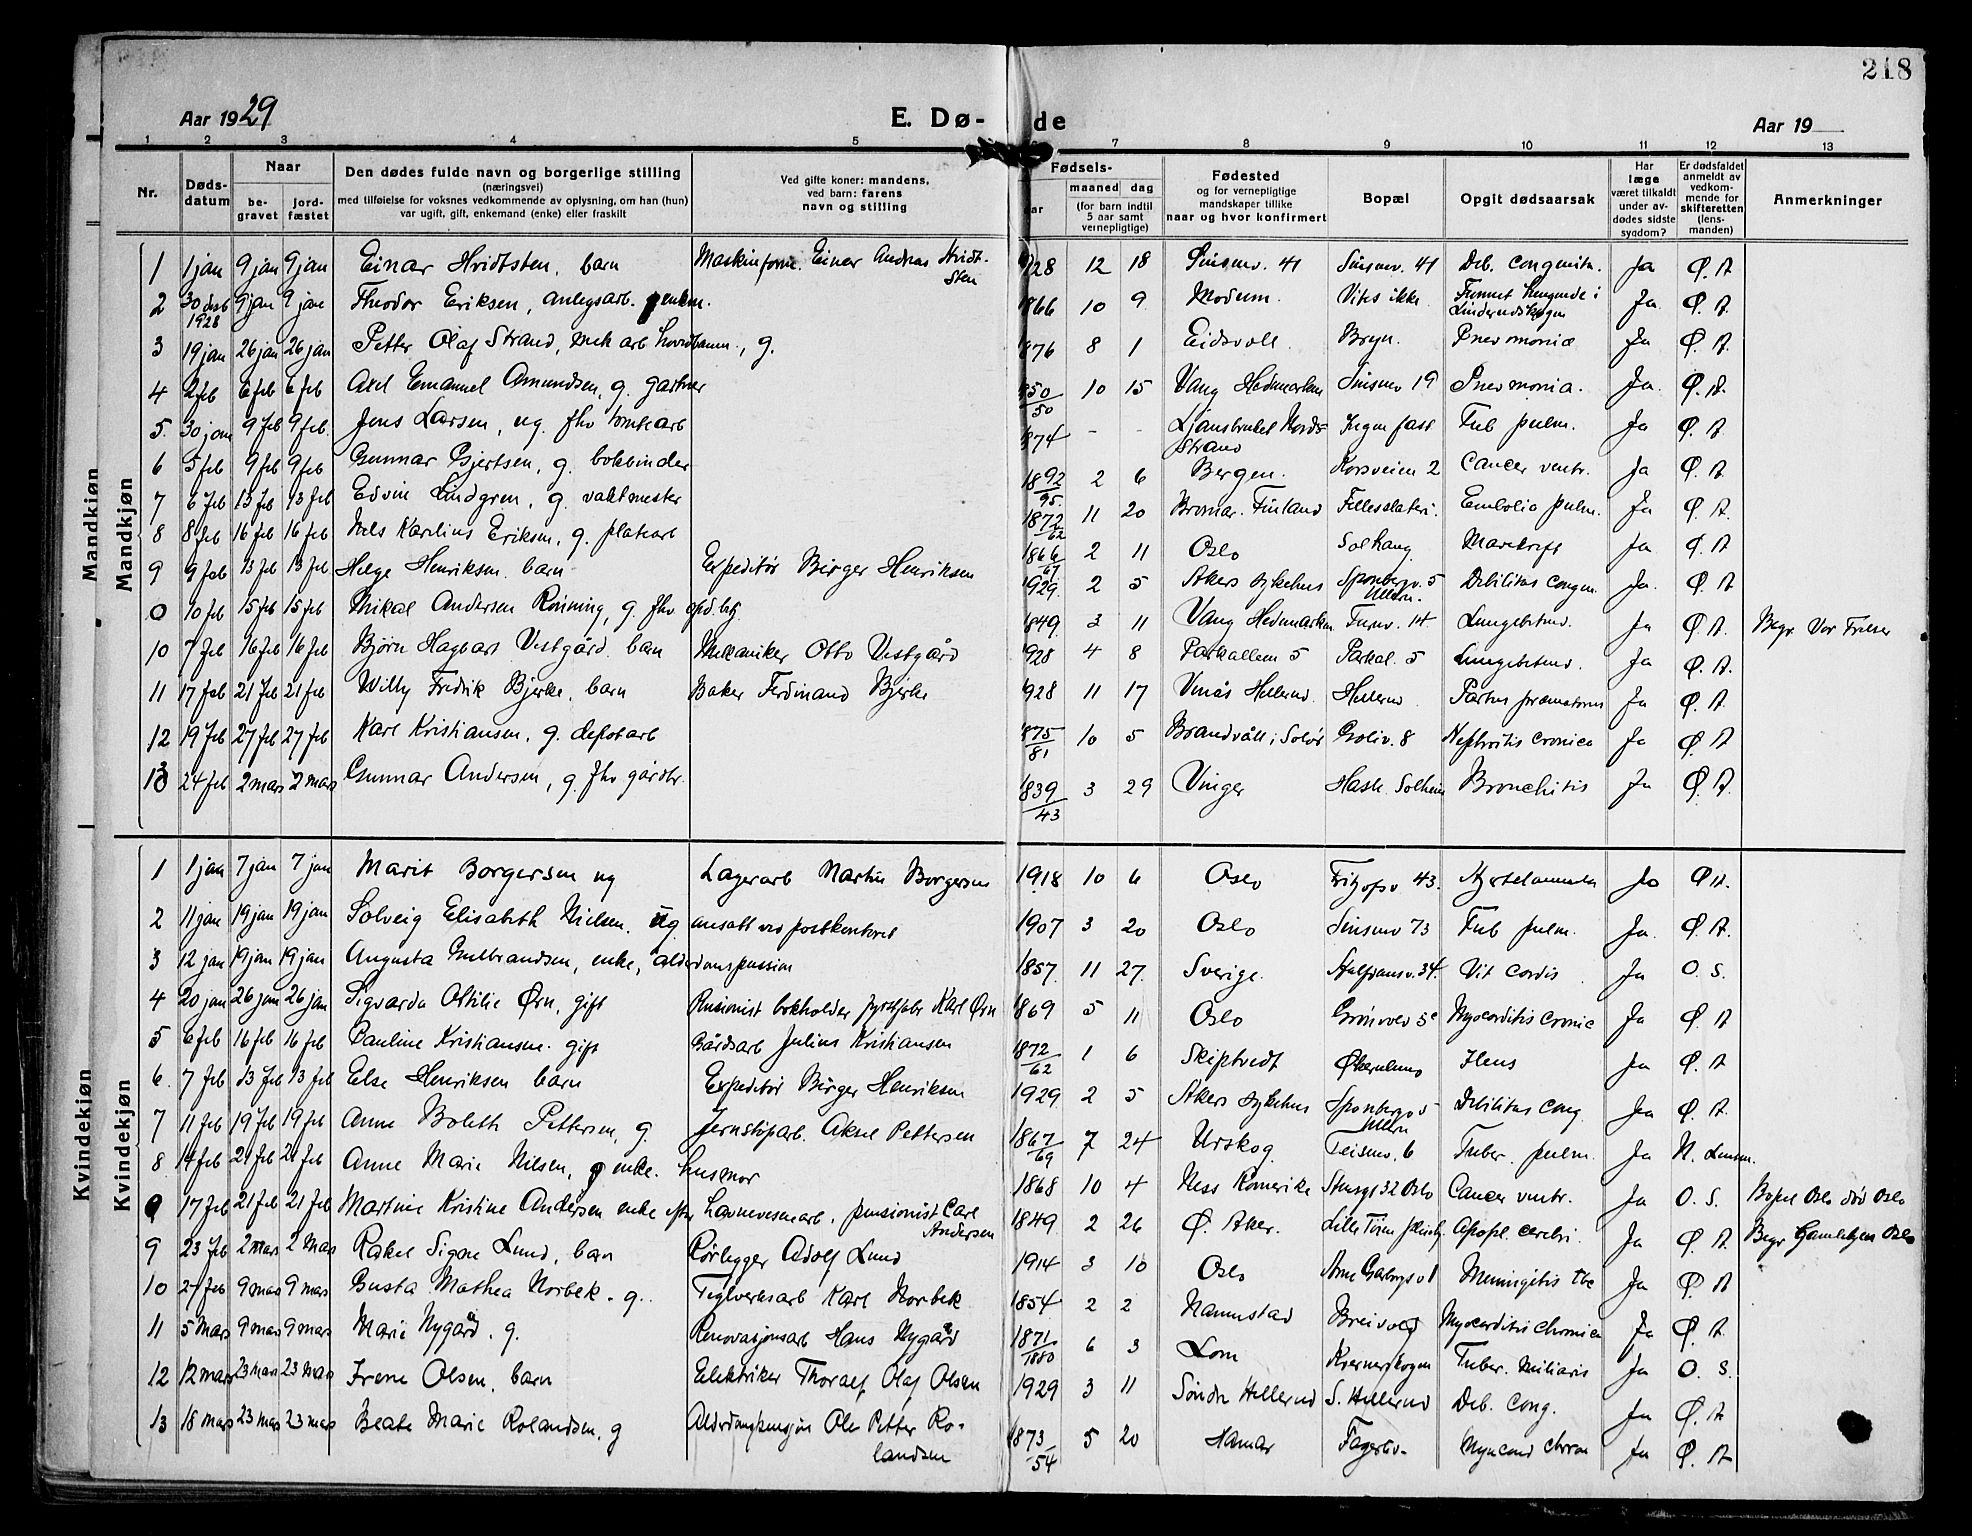 218
Aar 1929
E. Dø-
de
Aar 19
1 2 3 4 5 7 8 9 10 11 12 13
Nr. Døds-datum Naar be-gravet jord-fæstet
Den dødes fulde navn og borgerlige stilling
(næringsvei)
med tilføielse for voksnes vedkommende av oplysning, om han (hun)
var ugift, gift, enkemand (enke) eller fraskilt
Ved gifte koner: mandens,
ved barn: farens
navn og stilling
Fødsels-
aar maaned dag
(for barn indtil
5 aar samt
vernepligtige)
Fødested
og for vernepligtige
mandskaper tillike
naar og hvor konfirmert
Bopæl
Opgit dødsaarsak
Har
læge
været tilkaldt
under av-
dødes sidste
sygdom?
Er dødsfaldet
anmeldt av
vedkom-
mende for
skifteretten
(lens-
manden)
Anmerkninger
Mandkjøn
Mandkjøn
1 1 jan 9 jan 9 jan Einar Hvidtsten, barn Maskinform. Einar Andreas Hvidt-sten 928 12 18 Sinsenv. 41 Sinsenv. 41 Deb. congenita. Ja Ø. A
2 30 desb 1928 9 jan 9 jan Theodor Eriksen, anlegsarb. enkem. 866 10 9 Modum Vites ikke Funnet hengende i Ja Ø. A.
3 19 jan 26 jan 26 jan Petter Olaf Strand, mek arb, g. 876 8 1 Eidsvoll Bryn. Pnevmonia Ja Ø. A.
4 2 feb 6 feb 6 feb Axel Emanuel Amundsen, g. gartner 850/50 10 15 Vang Hedmarken Sinsenv 19 Pnevmonia. Ja Ø. A.
5. 30 jan 9 feb 9 feb. Jens Larsen, ug. fhv tomtearb 874 - - Ljansbruket Nord-strand Ingen fast Tub pulm. Ja Ø. A.
6 5 feb 9 feb 9 feb Gunnar Gjertsen, g. bokbinder 1892/95. 2 6 Bergen. Korsveien 2 Cancer ventr. Ja Ø. A.
7 6 feb 13 feb 13 feb Edvin Lindgren, g. vaktmester 1872/62 11 20 Bromar. Finland Embolia pulm. Ja Ø. A.
8 8 feb 16 feb 16 feb Nels Karelius Eriksen, g. platearb 1866/67 2 11 Oslo Solhaug Mavekreft Ja Ø. A
9 9 feb 13 feb 13 feb Helge Henriksen. barn Expeditør Birger Henriksen 1929 2 5 Akers sykehus Sponbergv. 5 Ullern. Debilitas congen. Ja. Ø. A
0 10 feb 15 feb 15 feb Mikal Andersen Rønning, g. fhv 849. 3 11 Vang Hedmarken Furuv. 14 Lungebetend. Ja Ø. A. Begr. Vor Frelser
10 7 feb 16 feb 16 feb Bjørn Hagbart Vestgård. barn Mekaniker Otto Vestgård 928 4 8 Parkalleen 5 Parkal. 5 Lungebetend. Ja Ø. A.
11 17 feb 21 feb 21 feb Willy Fredrik Bjerke, barn Baker Ferdinand Bjerke 928 11 17 Hellerud Hellerud Partus præmaturus Ja Ø. A.
12 19 feb 27 feb 27 feb Karl Kristiansen, g. depotarb 875/81 10 5 Brandvåll i Solør Soliv. 8 Nephritis cronica Ja Ø. A
13 24 feb 2 mars 2 mars Gunnar Andersen, g. fhv gårdbr. 839/43 3 29 Vinger Hasle Solheim Bronchitis Ja Ø. A.
Kvindekjøn
Kvindekjøn
1 1 jan 7 jan 7 jan Marit Borgersen ug Lagerarb Martin Borgersen 1918 10 6 Oslo Fritjofsv 43. Ja Ø A.
2 11 jan 19 jan 19 jan Solveig Elisabeth Nielsen, ug ansatt ved postkontoret 1907 3 20 Oslo Sinsenv 73 Tub pulm. Ja Ø. A.
3 12 jan 19 jan 19 jan Augusta Gulbrandsen, enke, alderdomspension 1857. 11 27. Sverige. 34. Vit cordis Ja O. S.
4 20 jan 26 jan 26 jan Sigvarda Ottilie Ørn, gift Pensionist bokholder Karl Ørn 1869 5 11 Oslo Myocarditis cronic Ja Ø. A
5 6 feb 16 feb 16 feb Pauline Kristiansen. gift Gårdsarb Julius Kristiansen 1872/62 1 6 Skiptvedt Økernbro Ileus Ja Ø. A
6. 7 feb 13 feb 13 feb Else Henriksen barn Expeditør Birger Henriksen 1929 2 5 Akers sykehus Sponbergv 5 Ullern Debilitas cong Ja Ø. A.
7 11 feb 19 feb 19 feb Anne Boleth Pettersen, g. Jernskiparb. Aksel Pettersen 1867/69 7 24 Urskog Teisenv. 6 Tuber. pulm. Ja N. Lensm.
8 14 feb 21 feb 21 feb Anne Marie Nilsen, enke. husmor 1868 10 4 Ness Romerike Stensgt 32 Oslo Cancer ventr. Ja O. S. Bopel Oslo død Oslo
9 17 feb 21 feb 21 feb Martine Kristine Andersen enke efter havnevesenarb. pensionist Carl Andersen 1849 2 26 Ø. Aker. Lille Tøien Apopl. cerebri. Ja Ø. A. Begr Gamlebyen Oslo
9 23 feb 2 mars 2 mars Rakel Signe Lund, barn Rørlegger Adolf Lund 1914 3 10 Oslo Arne Garborgsv 1 Meningitis tbc Ja Ø. A
10 27 feb 9 mars 9 mars Gusta Mathea Norbek. g. Teglverksarb Karl Norbek 1854 2 2 Nannestad Breivoll Myocarditis chronica Ja Ø. A.
11 5 mars 9 mars 9 mars Marie Nygård. g. Renovasjonsarb Hans Nygård 1871/1880 6 3 Lom Kvernerskogen Tuber. miliaris Ja O. S.
12 12 mars 23 mars 23 mars Irene Olsen, barn Elektriker Thoralf Olaf Olsen 1929 3 11 Søndre Hellerud S. Hellerud Deb. cong. Ja Ø. A
13 18 mars 23 mars 23 mars Beate Marie Rolandsen, g Alderdomspensjon Ole Petter Ro-landsen 873/54 5 20 Hamar Fagerliv. Myocard chron Ja Ø. A